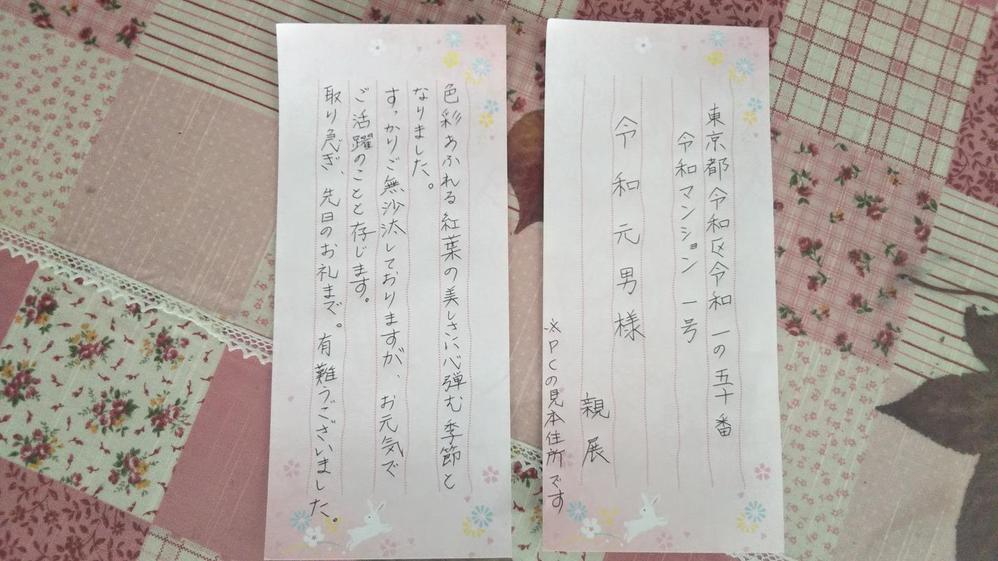 東京都令和区令和一の五十番
令和マンション一号
令和元男様
親展
※PCの見本住所です
色彩あふれる紅葉の美しさに心弾む季節と
なりました。
すっかりご無沙汰しておりますが、お元気で
ご活躍のことと存じます。
取り急ぎ、先日のお礼まで。有難うございました。